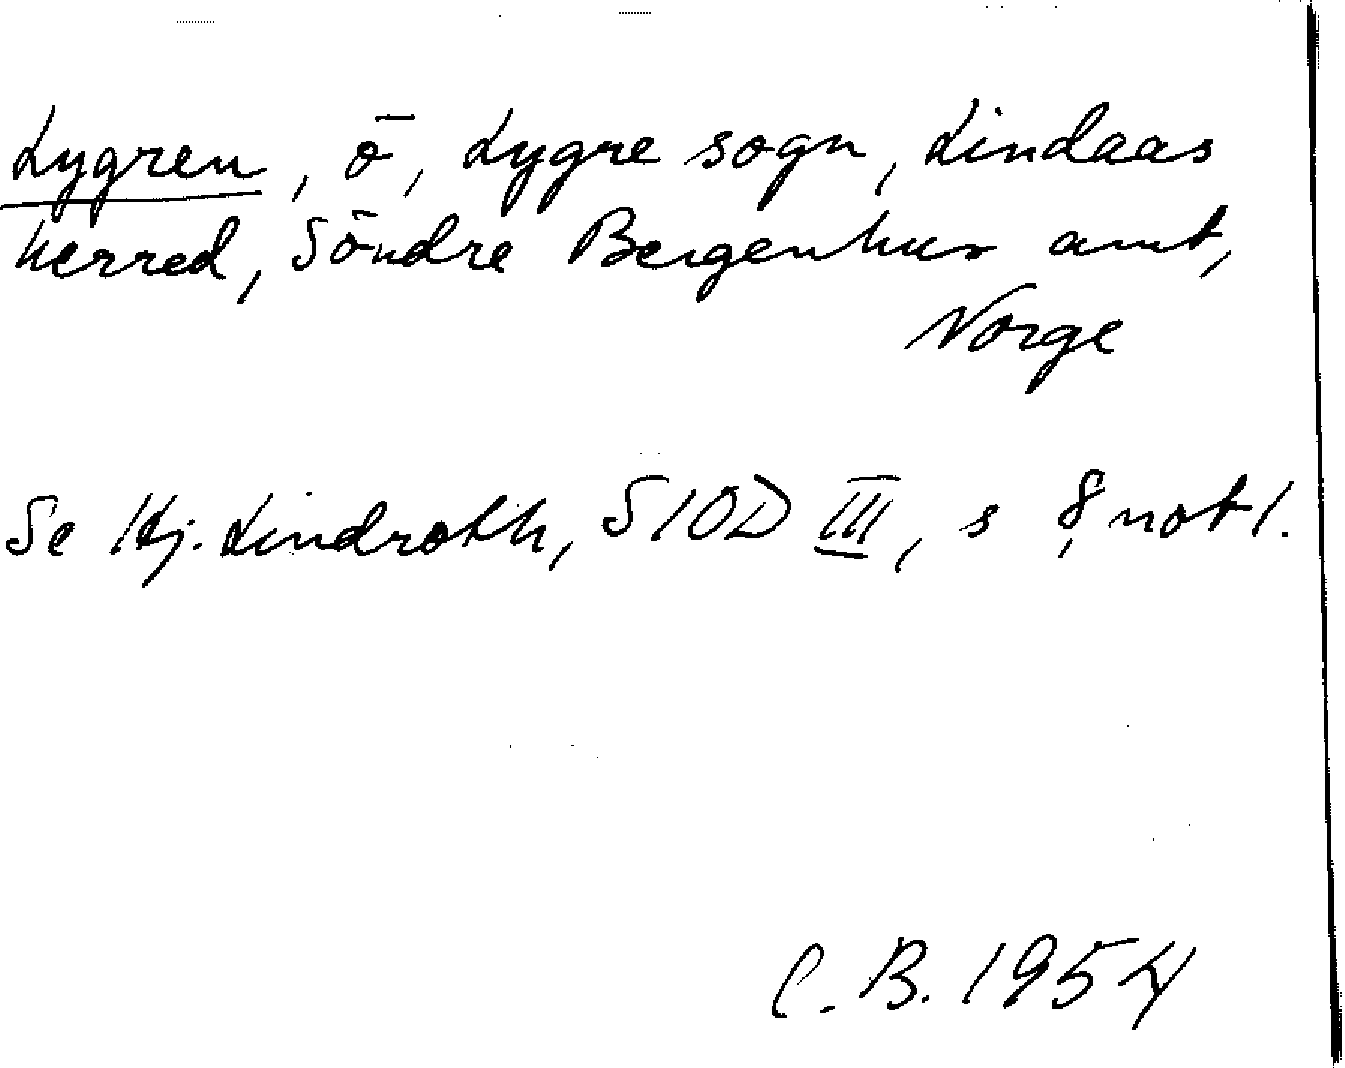 Lygren, ö, Lygre sogn, Lindaas
herred, Söndre Bergenhus amt,
Norge
Se Hj. Lindroth, SIOD III, s 8, not 1.
C. B. 1954